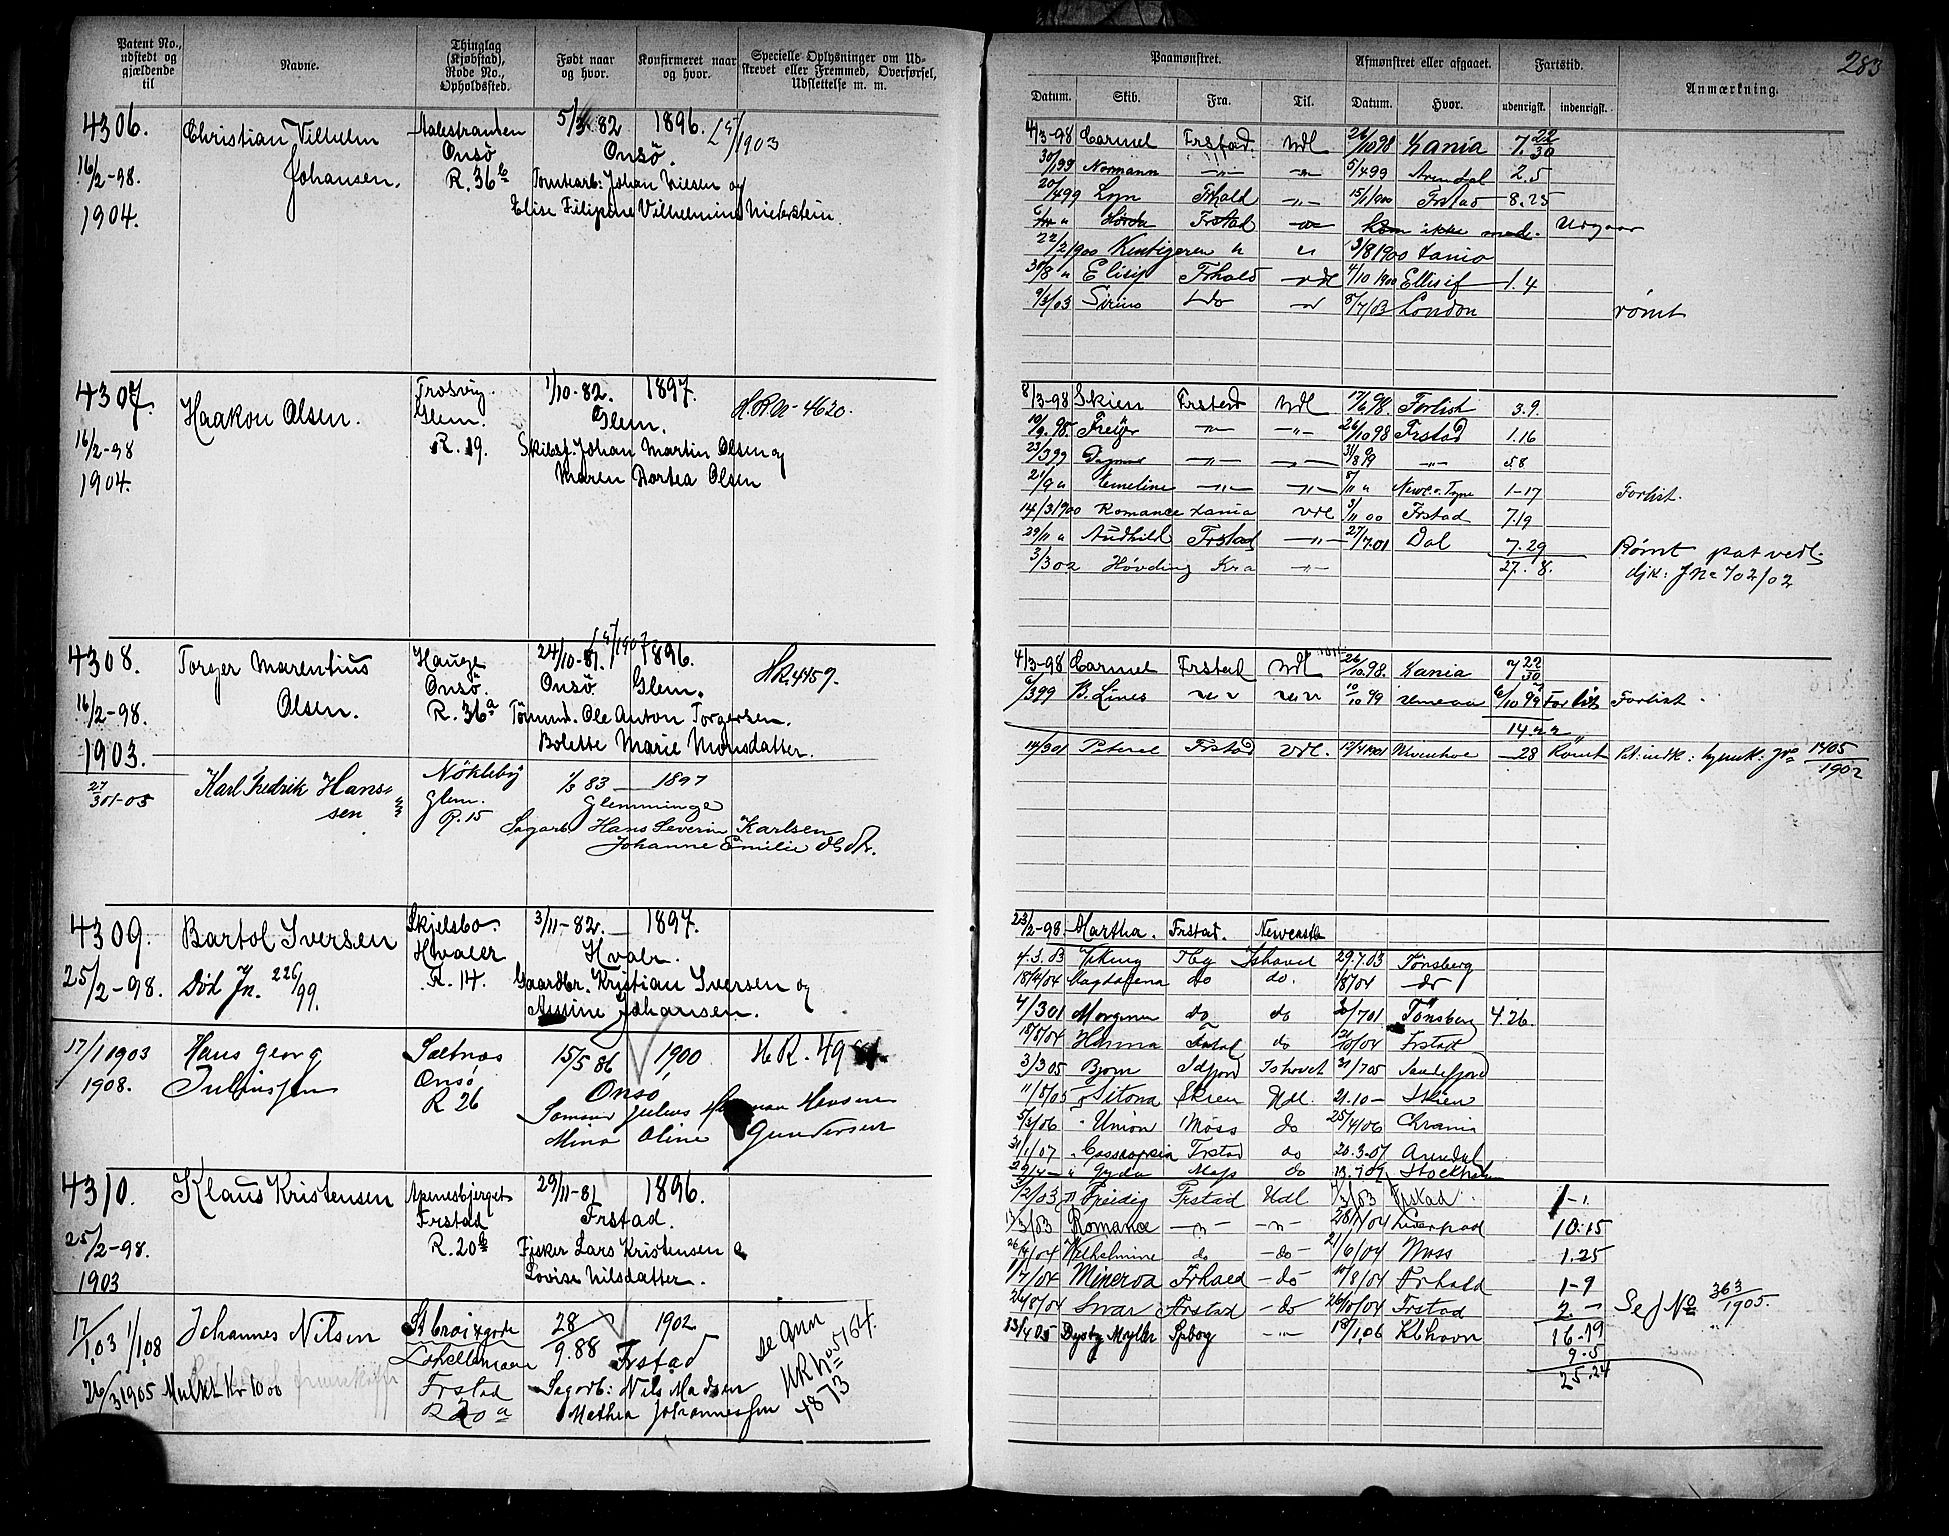 283
Patent No., udstedt og gjældende til
Navne.
Thinglag (Kjøbstad), Rode No., Opholdssted.
Født naar og hvor.
Konfirmeret naar og hvor.
Specielle Oplysninger om Udstrevet eller Fremmed, Overførsel, Udslettelse m. m.
Paamønstret.
Afmønstret eller afgaaet.
Fartstid.
Anmærkning.
Datum.
Skib.
Fra.
Til.
Datum.
Hvor.
udenrigsk.
indenrigsk.
4306.
16/2-98.
1904.
Christian Vilhelm
Johansen.
Aalestranden
Onsö
R. 36 b
5/3 82
1896.
Onsö.
Tomtearb: Johan Niesen og
Elise Filipine Vilhelmine Niederstein
1903
4/3-98 Carmel Frstad. Udl 26/10 98 Zania 7. 22/30
30/1 99 Normann 5/4 99 Arendal 2.5
20/4 99 Lyn Frhald 15/1 1900 Frstad 8.25
Horda Frstad Kom ikke med. Udgaar
22/2 1900 Kentigeren 3/8 1900
30/8 " Elisif Frhald Udl 4/10 1900 Ellisif 1.4
9/3/03 Sirius do 8/7/03 London rømt
4307.
16/2-98
1904.
Haakon Olsen.
Trosvig.
Glem.
R. 19.
1/10-82.
1897.
Glem.
Skibsf. Johan Martin Olsen og
Maren Dortea Olsen
H.R. No-4620.
8/3-98 Skien Frstad Udl 17/6 98. Forlist 3.9.
10/9. 98. Freijr 26/10 98 Frstad 1.16
23/3 99 Dagmar 31/8 99 58
21/9 " Emeline 8/11 " Newc. o. Tyne 1-17 Forlist.
14/3 1900 Romance Zania Udl 3/11 00 Frstad 7.19
29/11 " Audhild Frstad 27/7.01 Dal 7.29 Rømt pat vedl.
3/3 02 Høvding Kra 27. 8. Jno 702/02
4308.
16/2-98.
1903.
Torger Marentius
Olsen.
Hauge
Onsö.
R. 36 a
24/10-81.
1907
1896.
Onsö
Glem.
Tömmd. Ole Anton Torgersen.
Bolette Marie Monsdatter.
HR. 4459.
4/3-98 Carmel Frstad Udl 26/10 98. Zania 7 22/30
6/3 99 B. Lines 10/10 99 6/10 99 Forlist Forlist.
14 22
14/3 01 Peterel Frstad Udl. Wivenhoe 28 Rømt 1405/1902
27/3 01-05
Karl Fredrik Hanssen
Nökleby
Glem.
R. 15
83
1897
Glemminge
Sagarb Hans Severin Karlsen
Johanne Emilie
4309.
25/2-98.
Bartol Iversen
Død Jn. 226/99.
Skjelsbo.
Hvaler
R. 14.
3/11-82.
1897.
Hvaler.
Gaardbr. Kristian Iversen og
Johansen.
23/2-98. Martha. Frstad. Newcastle
4.3.03 Viking Tbg Ishavet 29.7.03 Tønsberg
18/4/04 Magdalena do do. 1/8/04 do
4/3 01 Morgenen do do 20/7 01 Tönsberg 4.26.
18/8/04 Hanna do 12/10/04 Frstad
3/3 05 Bjørn Sdfjord Ishavet 31/7 05 Sandefjord
11/8/05 Sitona Skien Udl. 21.10- Skien
5/3/06 Union Moss do 25/4/06 Chrania
31/1/07 Cassiopeia Frstad do 20.3.07 Arendal
29/4- Gyda Moss do Stockholm
17/1 1903
1908.
Hans Georg
Juliussen
Saltnæs
Onsö
R 26
15/5 86
1900
Onsö
Sømand Julius Herman Hansen
Mina Oline Gundersen
HR. 49
4310.
25/2-98.
1903
Klaus Kristensen
Apenesbjerget
Frstad
R. 20 b
29/11-81
1896.
Frstad.
Fisker Lars Kristensen
Lovise Nilsdatter.
/2/03 Freidig Frstad Udl 4/3/03 Frstad 1-1.
/3/03 Romance 28/1/04 Liverpool 10.15
26/4/04 Wilhelmine do -do- 21/6/04 Moss 1.25
1/7/04 Minerva Frhald -do- 10/8/04 Frhald 1-9
24/8/04 Snar Frstad -do 26/10/04 Frstad 2.- Se J No 363/1905.
13/4 05 Dysby Møller Spborg 18/1,06 Kbhavn 16-19
9.5
25.24
17/1,03 1/1,08
Johannes Nilsen
St. Croixgade
Frstad
R 20 a
28/9.88
1902
Frstad
Sagarb: Nils Madsen
Mathea Johannessen
Se Ann
HR No 5164.
4873
26/3 1905 Mulkt Kr 10 00